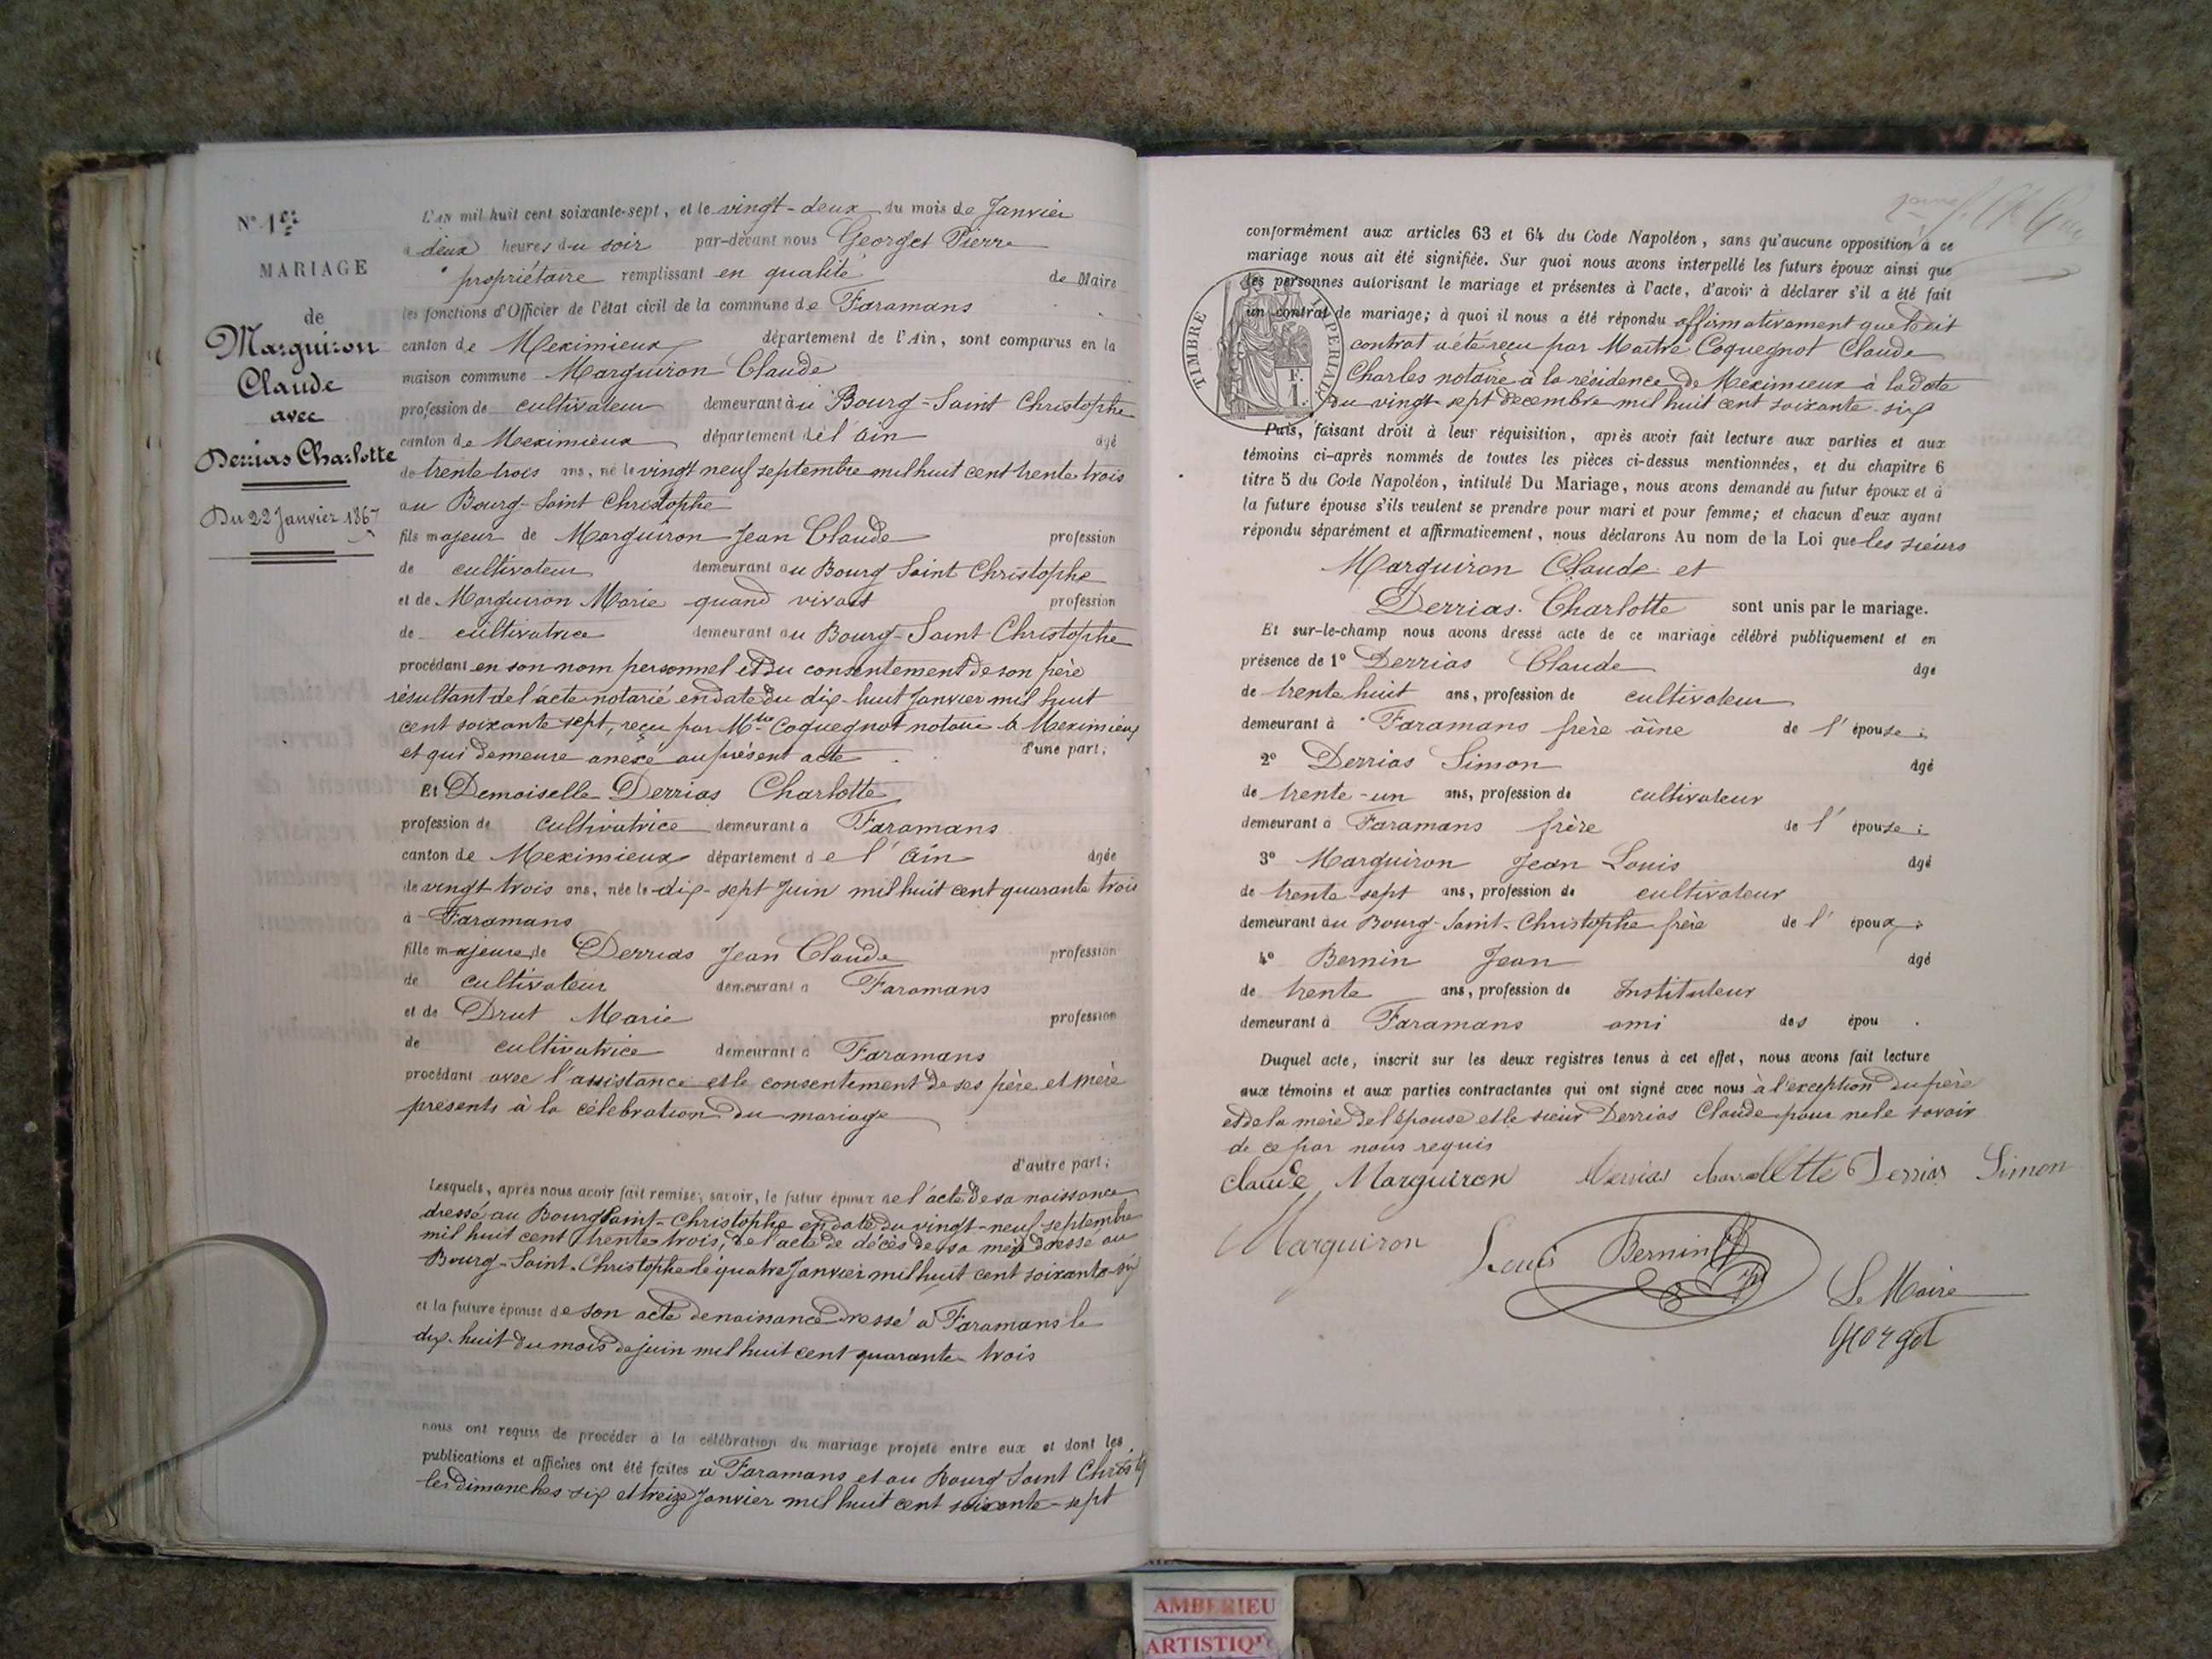 N° 1er
MARIAGE
de
Marguiron
Claude
avec
Derrias Charlotte
Du 22 Janvier 1867
L'AN mil huit cent soixante-sept, et le vingt-deux du mois de Janvier
à deux heures du soir par-devant nous Georget Pierre
propriétaire remplissant en qualité de Maire
les fonctions d'Officier de l'état civil de la commune de Faramans
canton de Meximieux département de l'Ain, sont comparus en la
maison commune Marguiron Claude
profession de cultivateur demeurant au Bourg-Saint Christophe
canton de Meximieux département de l'ain âgé
de trente trois ans, né le vingt neuf septembre mil huit cent trente trois
au Bourg-Saint Christophe
fils majeur de Marguiron Jean Claude profession
de cultivateur demeurant au Bourg Saint Christophe
et de Marguiron Marie quand vivait profession
de cultivatrice demeurant au Bourg-Saint-Christophe
procédant en son nom personnel et du consentement de son père
résultant de l'acte notarié en date du dix-huit Janvier mil huit
cent soixante sept, reçu par Mtre Coquegnot notaire à Meximieux
et qui demeure anexé au présent acte d'une part;
Et Demoiselle Derrias Charlotte
profession de cultivatrice demeurant à Faramans
canton de Meximieux département de l'ain âgée
de vingt trois ans, née le dix-sept Juin mil huit cent quarante trois
à Faramans
fille majeure de Derrias Jean Claude profession
de cultivateur demeurant à Faramans
et de Drut Marie profession
de cultivatrice demeurant à Faramans
procédant avec l'assistance et le consentement de ses père et mère
présents à la célebration du mariage
d'autre part;
Lesquels, après nous avoir fait remise, savoir, le futur époux de l'acte de sa naissance
dressé au Bourg Saint-Christophe en date du vingt-neuf septembre
mil huit cent trente trois, de l'acte de décès de sa mère dressé au
Bourg-Saint-Christophe le quatre Janvier mil huit cent soixante-six
et la future épouse de son acte de naissance dressé à Faramans le
dix-huit du mois de juin mil huit cent quarante-trois
nous ont requis de procéder à la célébration du mariage projeté entre eux et dont les
publications et affiches ont été faites à Faramans et au Bourg Saint Christophe
les dimanches six et treize Janvier mil huit cent soixante-sept
conformément aux articles 63 et 64 du Code Napoléon, sans qu'aucune opposition à ce
mariage nous ait été signifiée. Sur quoi nous avons interpellé les futurs époux ainsi que
les personnes autorisant le mariage et présentes à l'acte, d'avoir à déclarer s'il a été fait
un contrat de mariage; à quoi il nous a été répondu affirmativement que ledit
contrat a été reçu par Maître Coquegnot Claude
Charles notaire à la résidence de Meximieux à la date
du vingt-sept decembre mil huit cent soixante-six
TIMBRE IMPERIAL
F.
1.
Puis, faisant droit à leur réquisition, après avoir fait lecture aux parties et aux
témoins ci-après nommés de toutes les pièces ci-dessus mentionnées, et du chapitre 6
titre 5 du Code Napoléon, intitulé Du Mariage, nous avons demandé au futur époux et à
la future épouse s'ils veulent se prendre pour mari et pour femme; et chacun d'eux ayant
répondu séparément et affirmativement, nous déclarons Au nom de la Loi que les sieurs
Marguiron Claude et
Derrias Charlotte sont unis par le mariage.
Et sur-le-champ nous avons dressé acte de ce mariage célébré publiquement et en
présence de 1° Derrias Claude âgé
de trente huit ans, profession de cultivateur
demeurant à Faramans frère aîne de l'épouse;
2° Derrias Simon âgé
de trente-un ans, profession de cultivateur
demeurant à Faramans frère de l'épouse;
3° Marguiron Jean Louis âgé
de trente sept ans, profession de cultivateur
demeurant au Bourg-Saint-Christophe frère de l'époux;
4° Bernin Jean âgé
de trente ans, profession de Instituteur
demeurant à Faramans ami des épou .
Duquel acte, inscrit sur les deux registres tenus à cet effet, nous avons fait lecture
aux témoins et aux parties contractantes qui ont signé avec nous à l'exception du père
et de la mère de l'épouse et le sieur Derrias Claude pour ne le savoir
de ce par nous requis
Claude Marguiron Derrias Charlotte Derrias Simon
Marguiron Louis Bernin
Le Maire
Georget
AMBERIEU
ARTISTIQU